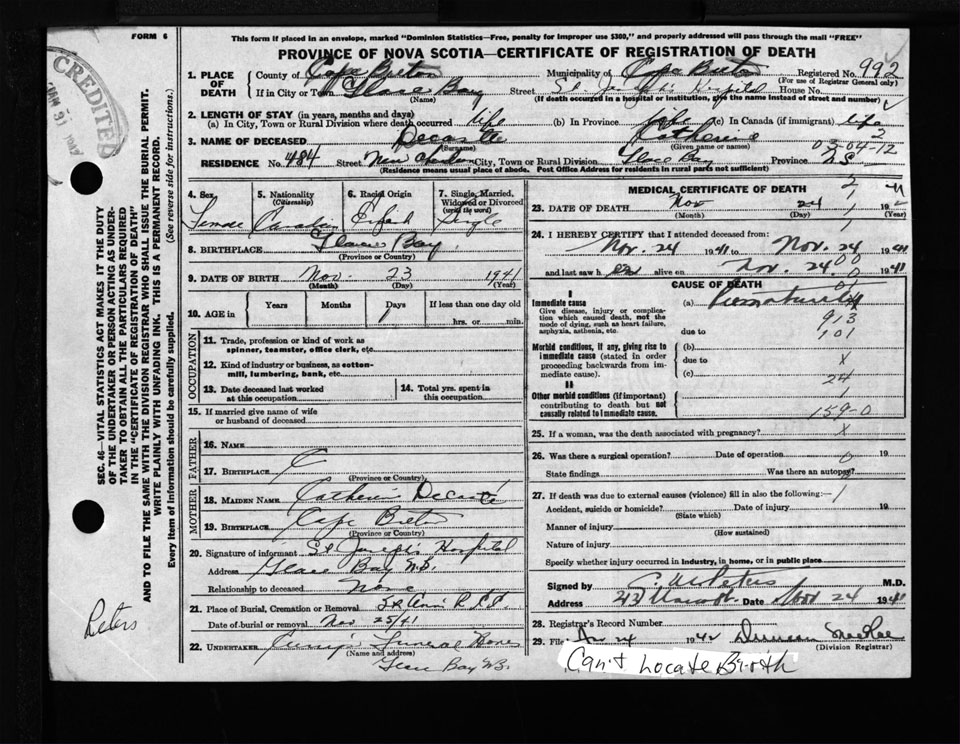 FORM 6
This form if placed in an envelope, marked "Dominion Statistics—Free, penalty for improper use $300," and properly addressed will pass through the mail "FREE"
PROVINCE OF NOVA SCOTIA—CERTIFICATE OF REGISTRATION OF DEATH
CREDITED
1. PLACE OF DEATH
County of Cape Breton Municipality of Cape Breton Registered No. 992
(For use of Registrar General only)
If in City or Town Glace Bay Street St Joseph's Hospital House No.
(Name) (If death occurred in a hospital or institution, give the name instead of street and number)
2. LENGTH OF STAY (in years, months and days)
(a) In City, Town or Rural Division where death occurred life (b) In Province life (c) In Canada (if immigrant) life
3. NAME OF DECEASED Decoste Catherine
(Surname) (Given name or names)
2
03-04-12
RESIDENCE No. 484 Street New Aberdeen City, Town or Rural Division Glace Bay Province N.S.
(Residence means usual place of abode. Post Office Address for residents in rural parts not sufficient)
4. Sex 5. Nationality (Citizenship) 6. Racial Origin 7. Single, Married, Widowed or Divorced (write the word)
Female Canadian Single
8. BIRTHPLACE Glace Bay
(Province or Country)
9. DATE OF BIRTH Nov. 23 1941
(Month) (Day) (Year)
10. AGE in Years Months Days If less than one day old
1 hrs. or min.
OCCUPATION
11. Trade, profession or kind of work as spinner, teamster, office clerk, etc.
12. Kind of industry or business, as cotton-mill, lumbering, bank, etc.
13. Date deceased last worked at this occupation
14. Total yrs. spent in this occupation
15. If married give name of wife or husband of deceased
FATHER
16. NAME
17. BIRTHPLACE
(Province or Country)
MOTHER
18. MAIDEN NAME Catherine Decoste
19. BIRTHPLACE Cape Breton
(Province or Country)
20. Signature of informant St Joseph's Hospital
Address Glace Bay N.S.
Relationship to deceased None
21. Place of Burial, Cremation or Removal
Date of burial or removal Nov 25/41
22. UNDERTAKER Funeral Home
(Name and address)
Glace Bay N.S.
MEDICAL CERTIFICATE OF DEATH
23. DATE OF DEATH Nov 24 19
(Month) (Day) (Year)
24. I HEREBY CERTIFY that I attended deceased from:
Nov. 24 1941 to Nov. 24 1941
and last saw her alive on Nov. 24 1941
CAUSE OF DEATH
I
Immediate cause
Give disease, injury or complication which caused death, not the mode of dying, such as heart failure, asphyxia, asthenia, etc.
(a) Prematurity
913
due to 101
Morbid conditions, if any, giving rise to immediate cause (stated in order proceeding backwards from immediate cause).
(b)
due to X
(c)
24
II
Other morbid conditions (if important) contributing to death but not causally related to immediate cause.
1
159-0
25. If a woman, was the death associated with pregnancy? X
26. Was there a surgical operation? Date of operation 19
State findings Was there an autopsy?
27. If death was due to external causes (violence) fill in also the following:—
Accident, suicide or homicide? Date of injury 19
(State which)
Manner of injury
(How sustained)
Nature of injury
Specify whether injury occurred in Industry, in home, or in public place
Signed by M.D.
Address Date Nov 24 1941
28. Registrar's Record Number
29. File 24 1942 Duncan MacRae
(Division Registrar)
Can't Locate Birth
SEC. 46—VITAL STATISTICS ACT MAKES IT THE DUTY OF THE UNDERTAKER OR PERSON ACTING AS UNDERTAKER TO OBTAIN ALL THE PARTICULARS REQUIRED IN THE "CERTIFICATE OF REGISTRATION OF DEATH"
AND TO FILE THE SAME WITH THE DIVISION REGISTRAR WHO SHALL ISSUE THE BURIAL PERMIT.
WRITE PLAINLY WITH UNFADING INK. THIS IS A PERMANENT RECORD.
Every item of Information should be carefully supplied. (See reverse side for instructions.)
Peters